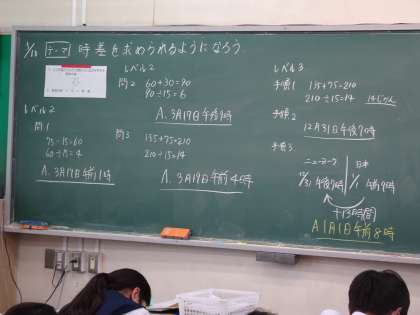 1/18 テーマ 時差を求められるようになろう.
レベル2
問1
75-15=60
60÷15=4
A. 3月17日午前1時
レベル2
問2
60+30=90
90÷15=6
A. 3月17日午後9時
問3
135+75=210
210÷15=14
A. 3月19日午前4時
レベル3
手順1 135+75=210
210÷15=14 14じかん
手順2
12月31日午後7時
手順3
ニューヨーク 日本
12/31 午後7時 1/1 午前9時
+13時間
A 1月1日午前8時